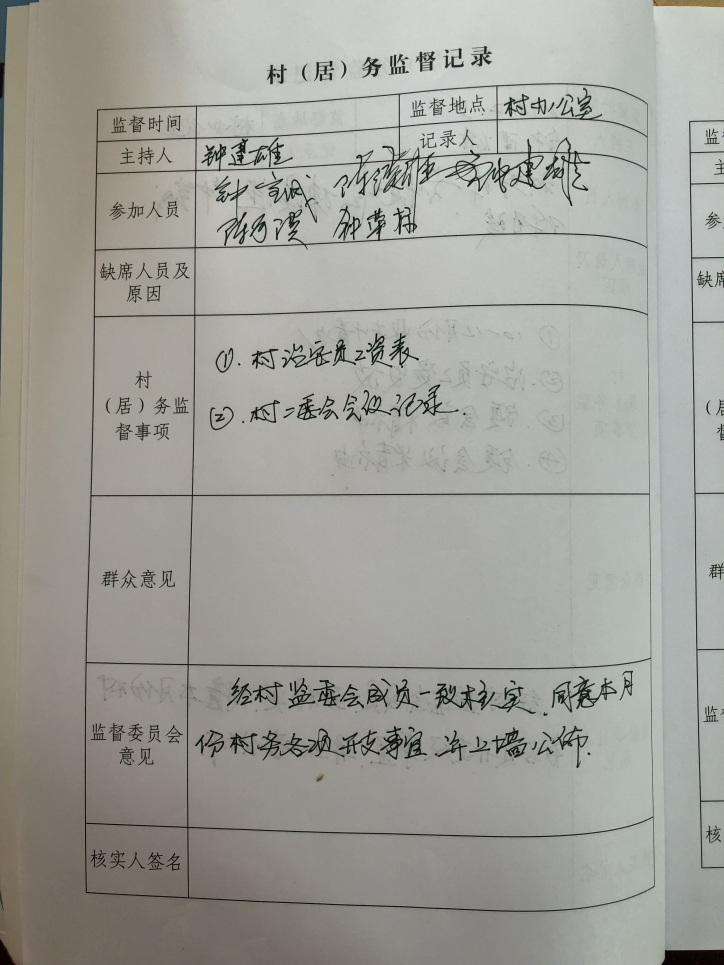 村（居）务监督记录
监督时间 监督地点 村办公室
主持人 钟建雄 记录人
参加人员 钟 陈 钟建雄
陈 钟荣栋
缺席人员及
原因
村
（居）务监
督事项
①.村治安员工资表
②.村二委会会议记录.
群众意见
监督委员会
意见
经村监委会成员一致核实.同意本月
份村务各项开支事宜.并上墙公佈.
核实人签名